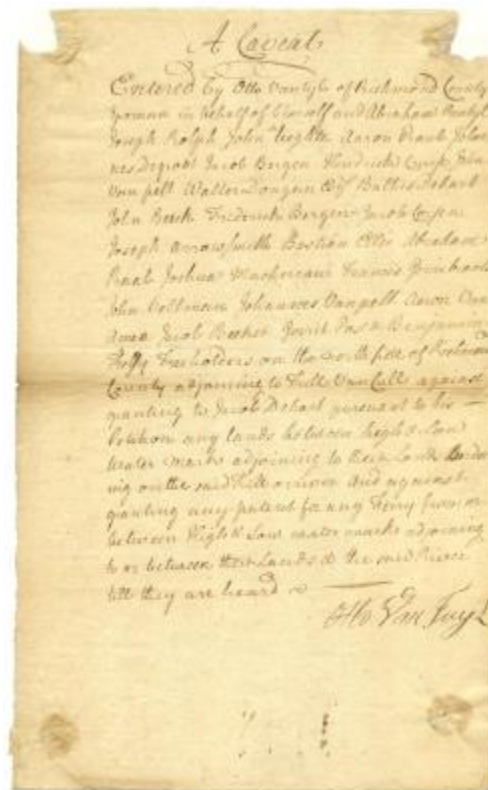 A Caveat
Entered by Otto Vantyle of Richmond County
yeoman in behalf of himself and Abraham
Joseph Rolph John Aaron Praal Johan
nes Degroot Jacob Bergen Hendrick Cruse John
Van pelt Walter Dongan Esqr Balthis Dehart
John Beck Frederick Bergen Jacob Corsen
Joseph Arrowsmith Bastian Ellis Abraham
Praal Joshua Francis
John Veltman Johannes Vanpelt Aaron
Jacob Becker Benjamin
Freeholders on the north side of Richmond
County adjoining to Kill Van Cull against
granting to Jacob Dehart pursuant to his
Petition any lands between high & Low
water mark adjoining to their Land border
ing on the said Kill or river and against
granting any patent for any Ferry from or
between High & Low water marks adjoining
to or between their Lands & the said River
till they are heard
Otto Van Tuyl